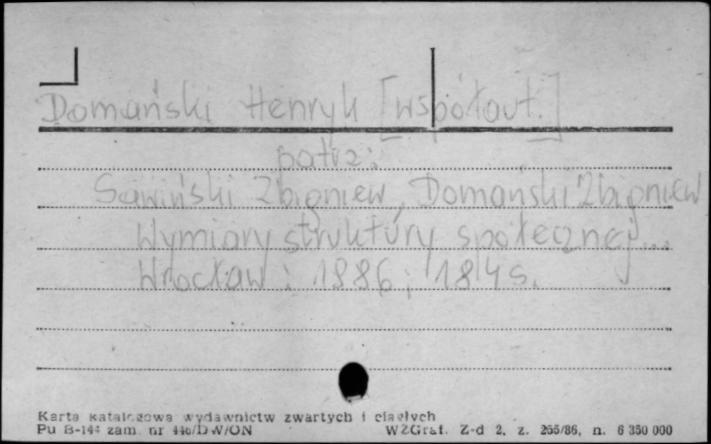 Domański Henryk [współaut.]
patrz:
Sawiński Zbigniew, Domański Zbigniew
Wymiary struktury społecznej...
Wrocław: 1986; 184 s.
Karta katalogowa wydawnictw zwartych i ciągłych
Pu B-144 zam. nr 446/DW/ON WZGraf. Z-d 2, z. 255/86, n. 6 350 000